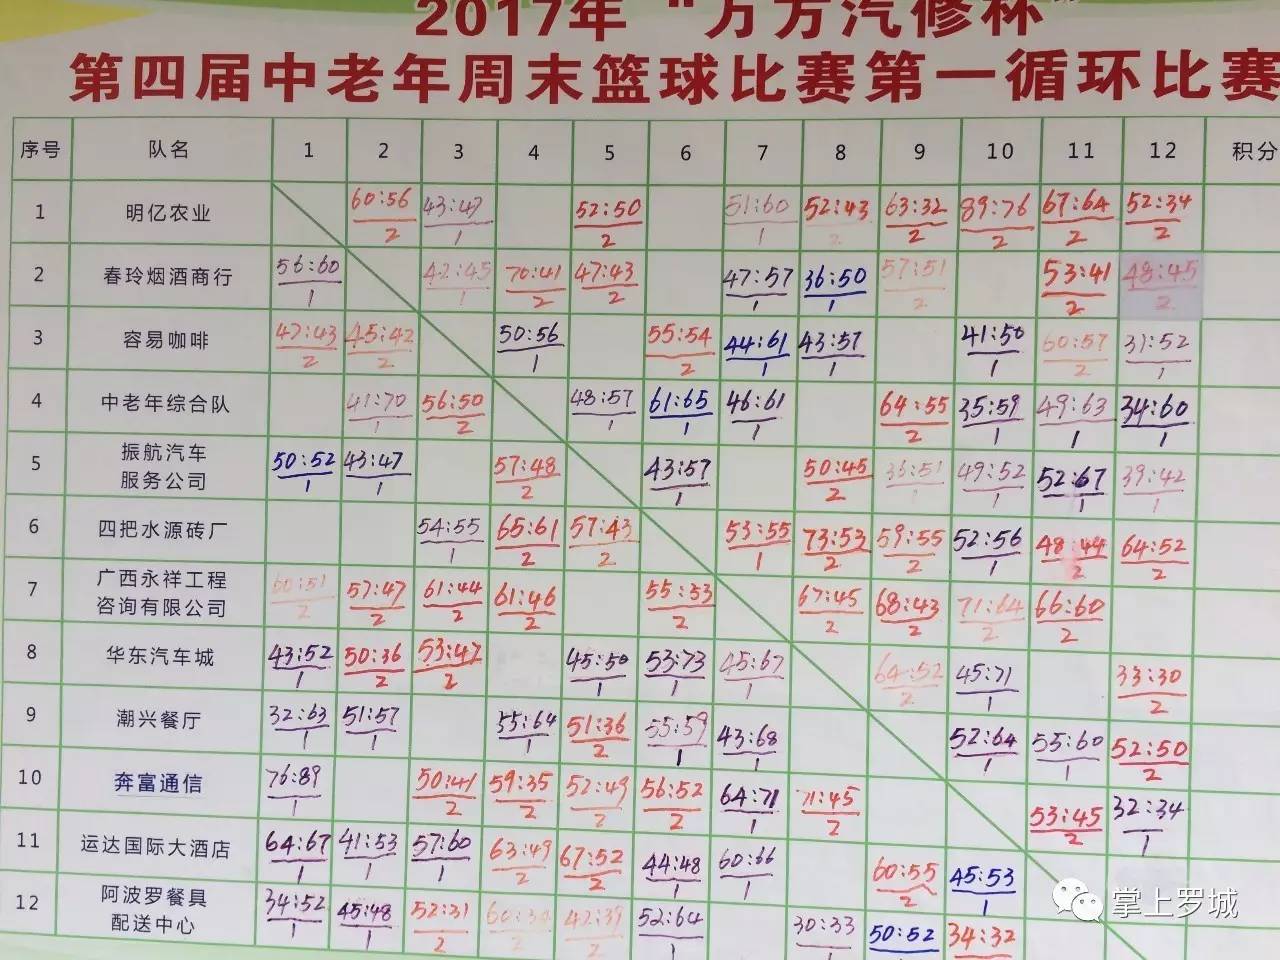 2017年“万方汽修杯”
第四届中老年周末篮球比赛第一循环比赛
序号 队名 1 2 3 4 5 6 7 8 9 10 11 12 积分
1 明亿农业 60:56 43:47 52:50 51:60 52:43 63:32 89:76 67:64 52:34
2 1 2 1 2 2 2 2 2
2 春玲烟酒商行 56:60 42:45 70:41 47:43 47:57 36:50 57:51 53:41 48:45
1 1 2 2 1 1 2 2 2
3 容易咖啡 47:43 45:42 50:56 55:54 44:61 43:57 41:50 60:57 31:52
2 2 1 2 1 1 1 2 1
4 中老年综合队 41:70 56:50 48:57 61:65 46:61 64:55 35:59 49:63 34:60
1 2 1 1 1 2 1 1 1
5 振航汽车
服务公司 50:52 43:47 57:48 43:57 50:45 36:51 49:52 52:67 39:42
1 1 2 1 2 1 1 1 1
6 四把水源砖厂 54:55 65:61 57:43 53:55 73:53 59:55 52:56 48:44 64:52
1 2 2 1 2 2 1 2 2
7 广西永祥工程
咨询有限公司 60:51 57:47 61:44 61:46 55:53 67:45 68:43 71:64 66:60
2 2 2 2 2 2 2 2 2
8 华东汽车城 43:52 50:36 53:47 45:50 53:73 45:67 64:52 45:71 33:30
1 2 2 1 1 1 2 1 2
9 潮兴餐厅 32:63 51:57 55:64 51:36 55:59 43:68 52:64 55:60 52:50
1 1 1 2 1 1 1 1 2
10 奔富通信 76:89 50:41 59:35 52:49 56:52 64:71 71:45 53:45 32:34
1 2 2 2 2 1 2 2 1
11 运达国际大酒店 64:67 41:53 57:60 63:49 67:52 44:48 60:66 60:55 45:53
1 1 1 2 2 1 1 2 1
12 阿波罗餐具
配送中心 34:52 45:48 52:31 60:34 42:39 52:64 30:33 50:52 34:32
1 1 2 2 2 1 1 1 2
掌上罗城